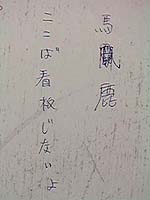 馬鹿
ここば看板じないよ